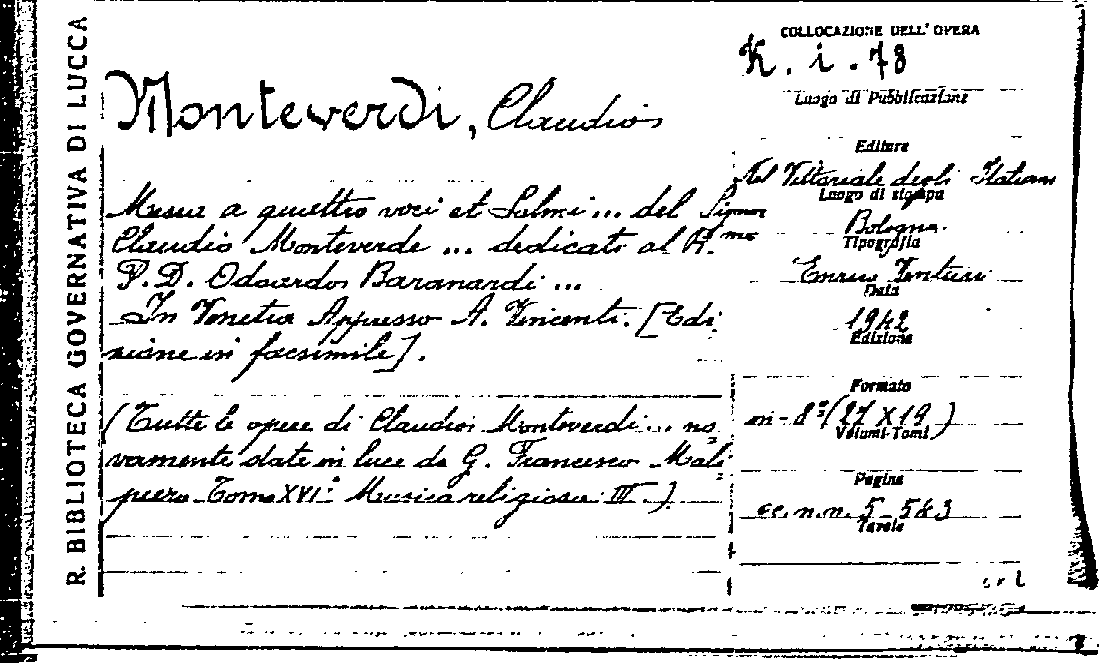 R. BIBLIOTECA GOVERNATIVA DI LUCCA
Monteverdi, Claudio
Messa a quattro voci et Salmi ... del Signor
Claudio Monteverde ... dedicato al R.mo
P. D. Odoardo Baranardi ...
In Venetia Appresso A. Vincenti. [Edi
zione in facsimile].
(Tutte le opere di Claudio Monteverdi ... no
vamente date in luce da G. Francesco Mali
piero Tomo XVI° Musica religiosa III.)
COLLOCAZIONE DELL' OPERA
K. i. 78
Luogo di Pubblicazione
Editore
Il Vittoriale degli Italiani
Luogo di stampa
Bologna.
Tipografia
Enrico Venturi
Data
1942
Edizione
Formato
in-8° (27 X 19)
Volumi-Tomi
Pagine
cc. n.n. 5-543
Tavole